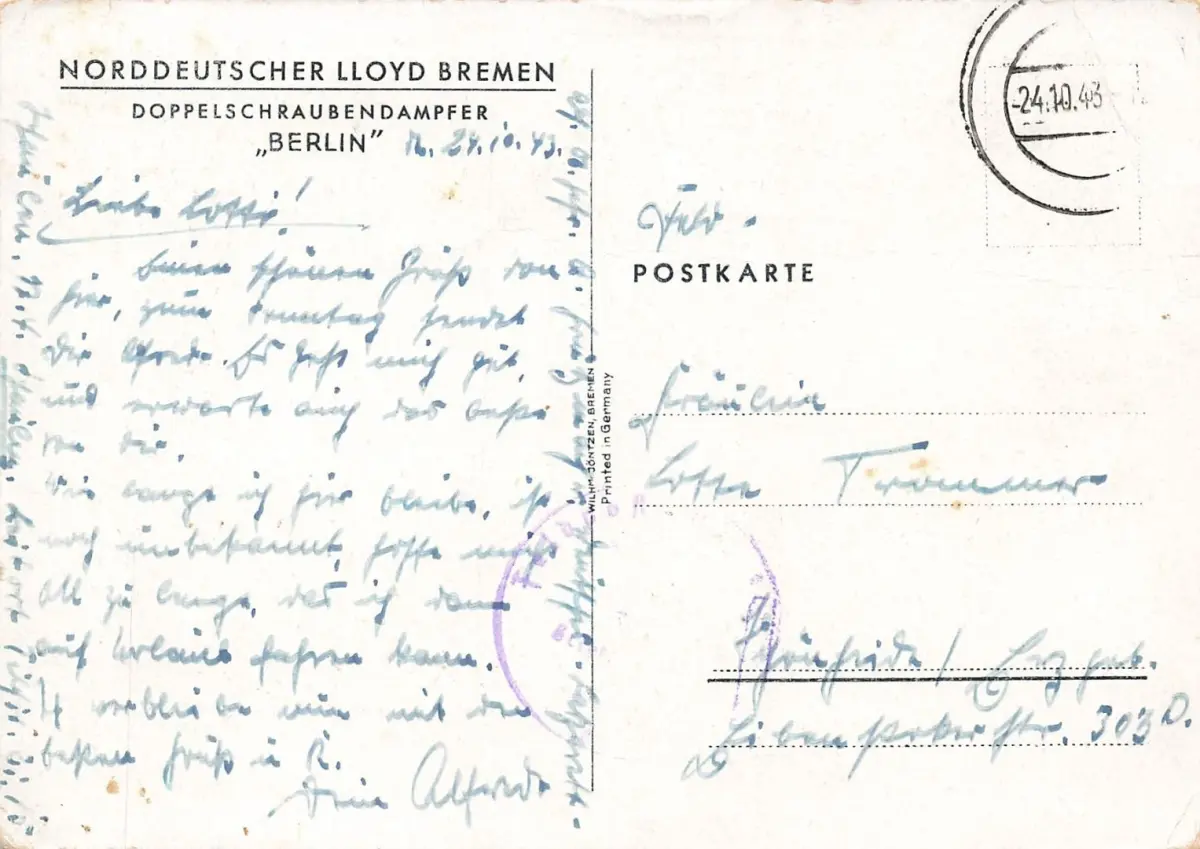 NORDDEUTSCHER LLOYD BREMEN
DOPPELSCHRAUBENDAMPFER
„BERLIN”
24.10.43.
Liebe Lotte!
Einen schönen Gruß von
hier, zum Sonntag sendet
Dir Alfred. Es geht mich gut,
und erwarte auch das beste
von dir.
Wie lange ich hier bleibe, ist
noch unbekannt, hoffe nicht
all zu lange, das ich dann
auf Urlaub fahren kann.
Ich verbleibe nun mit den
besten Grüß u K.
Dein Alfred
WILHM. JÖNTZEN, BREMEN
Printed in Germany
-24.10.43
Feld-
POSTKARTE
Fräulein
Lotte Trommer
Schönheide / Erzgeb.
Eibenstockerstr. 303 D.